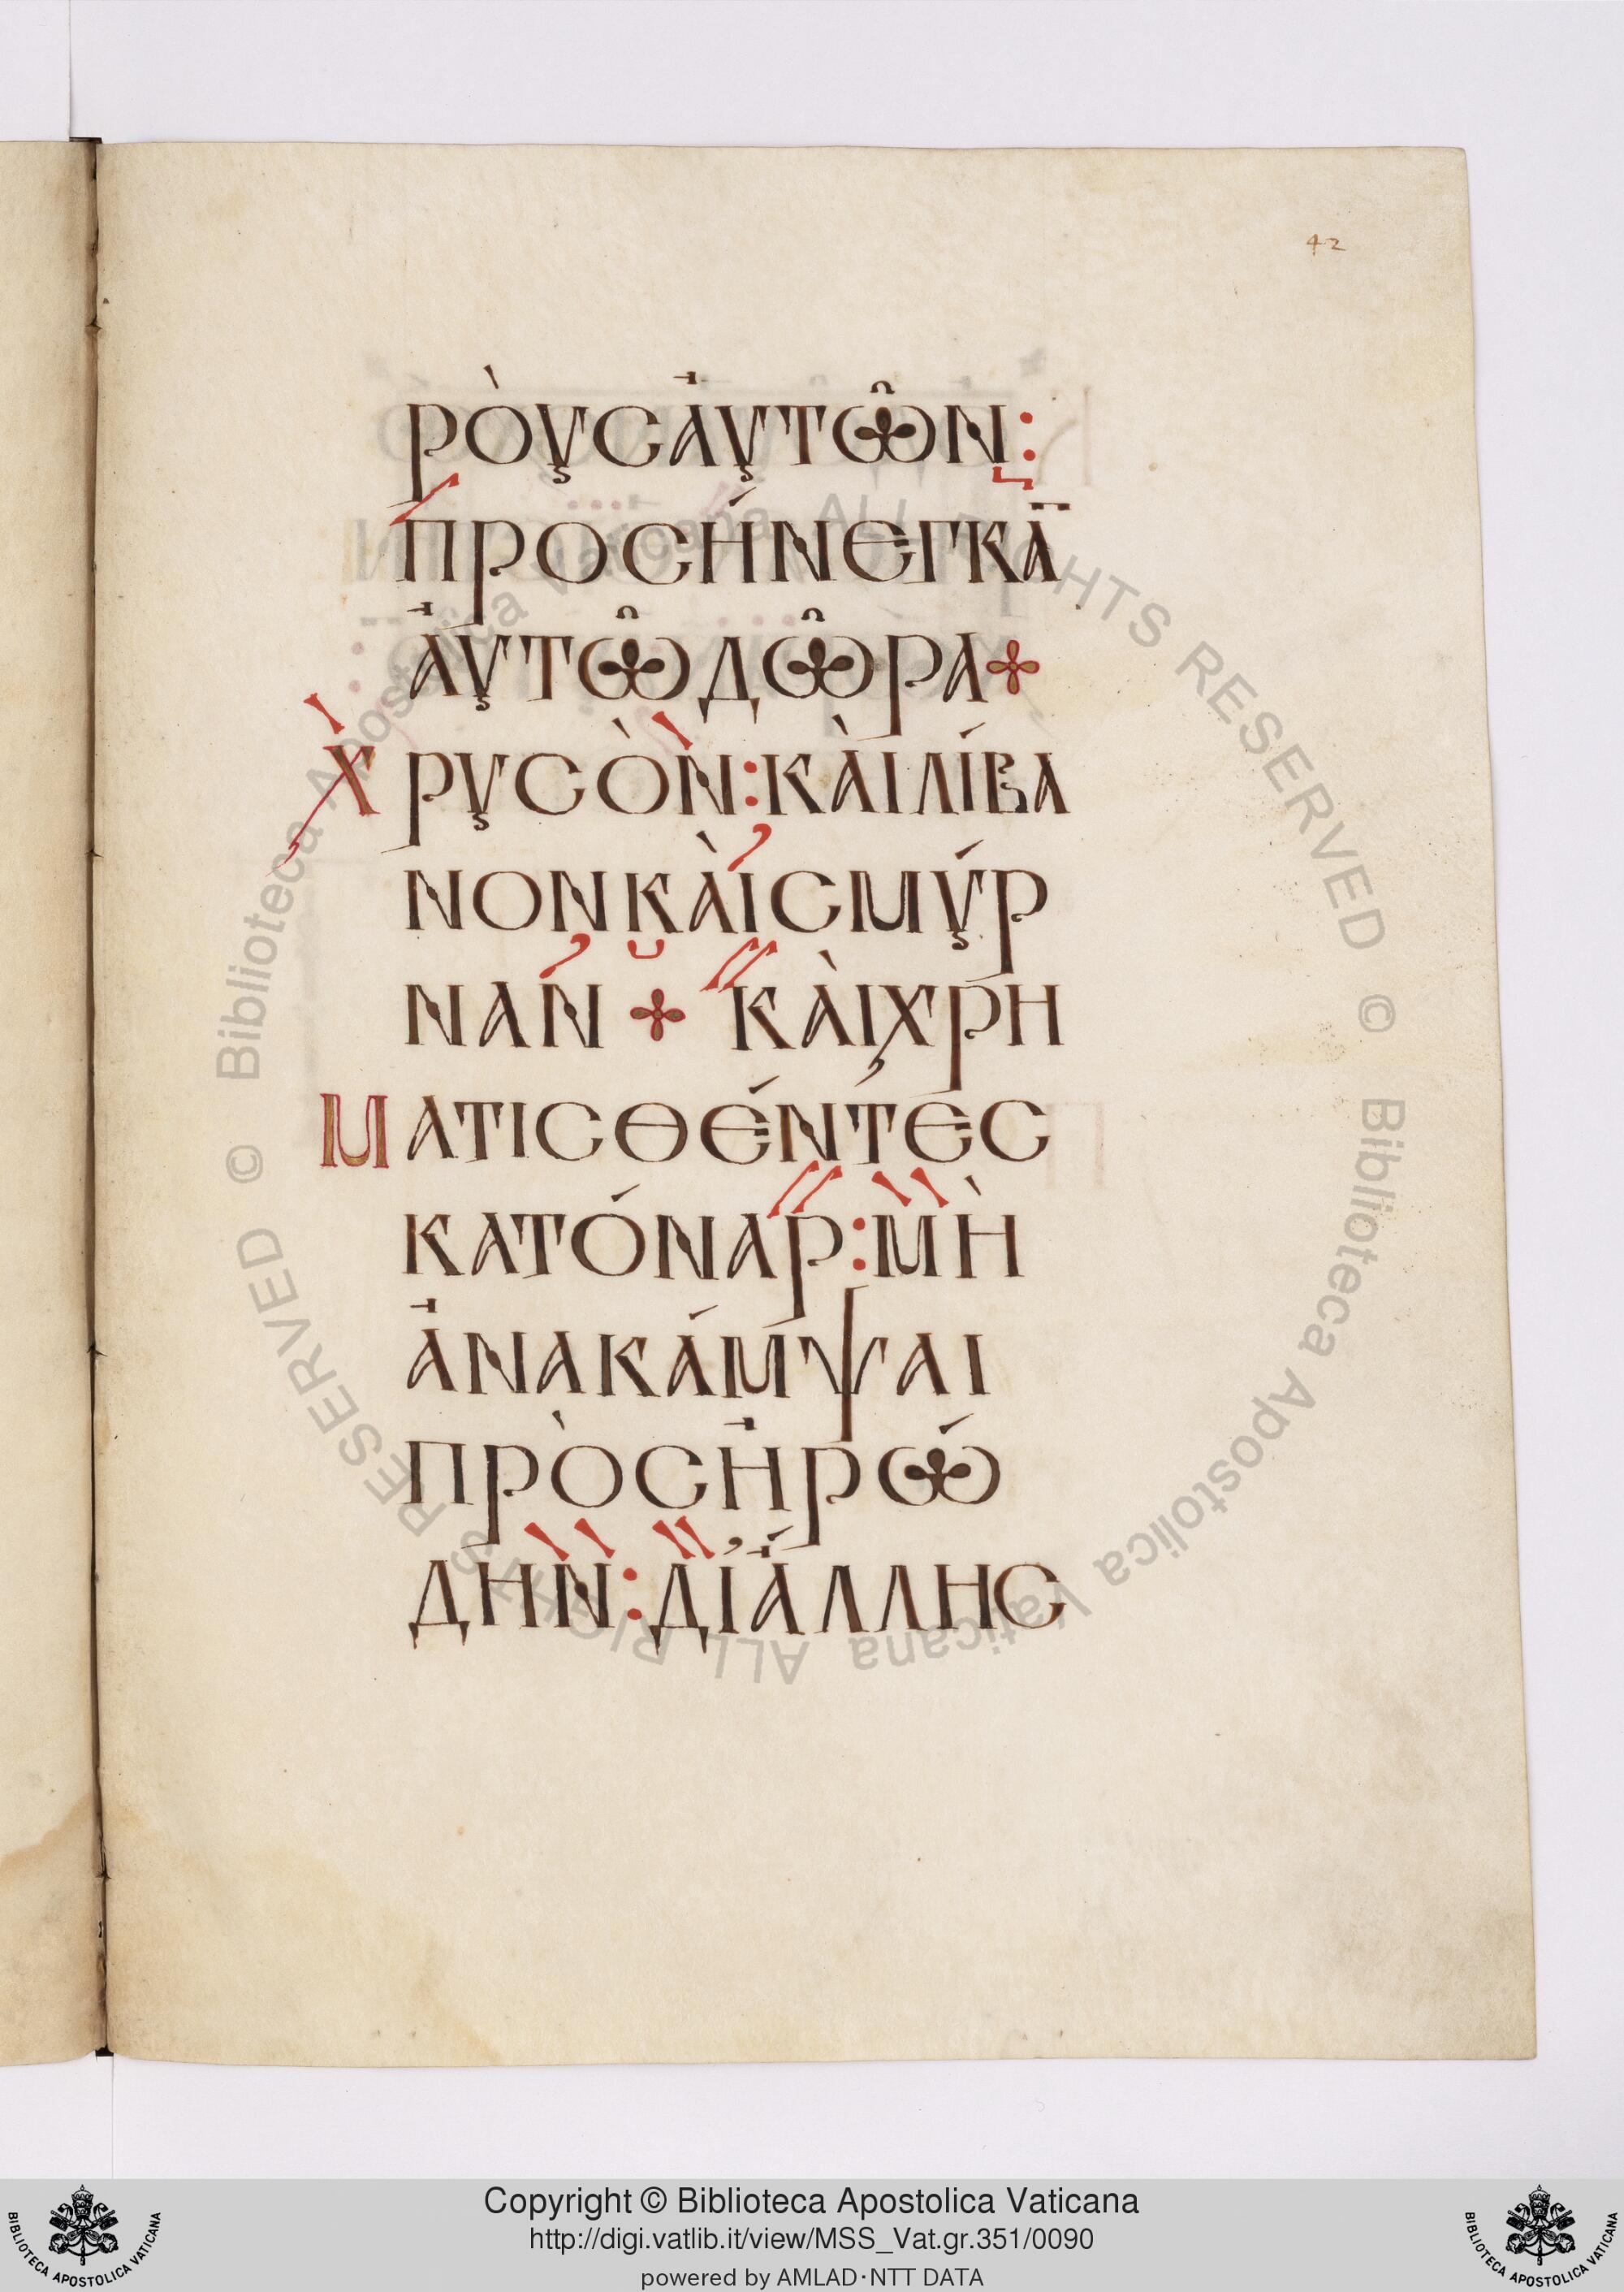 42
ρὸυσἀυτῶν:
προσήνεγκᾱ
ἀυτῶδῶρα+
χρυσὸν:κὰιλίβα
νονκὰισμύρ
ναν + κὰιχρη
ματισθέντες
κατόναρ:μὴ
ἀνακάμψαι
πρὸσἡρώ
δην:δι'ἄλλησ
© Biblioteca Apostolica Vaticana ALL RIGHTS RESERVED © Biblioteca Apostolica Vaticana ALL RIGHTS RESERVED
BIBLIOTECA APOSTOLICA VATICANA
Copyright © Biblioteca Apostolica Vaticana
http://digi.vatlib.it/view/MSS_Vat.gr.351/0090
powered by AMLAD·NTT DATA
BIBLIOTECA APOSTOLICA VATICANA